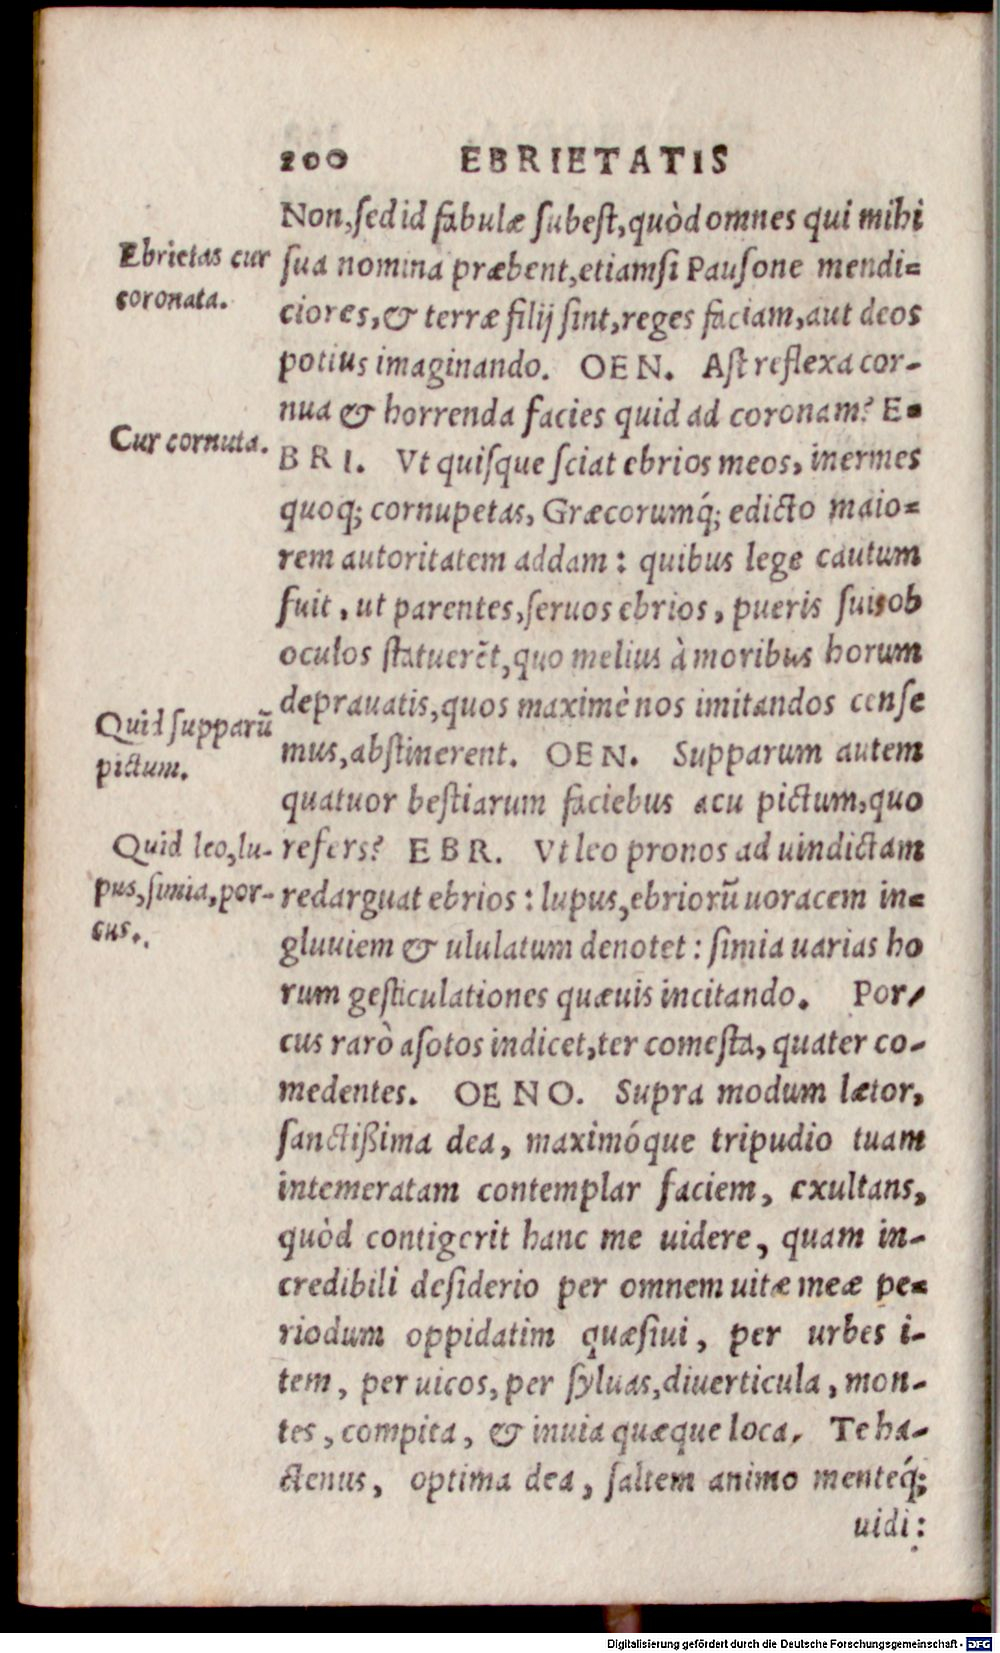 200 EBRIETATIS
Non, sed id fabulæ subest, quòd omnes qui mihi
Ebrietas cur
coronata.
sua nomina præbent, etiamsi Pausone mendi=
ciores, & terræ filij sint, reges faciam, aut deos
potius imaginando. OEN. Ast reflexa cor-
nua & horrenda facies quid ad coronam? E=
Cur cornuta.
BRI. Vt quisque sciat ebrios meos, inermes
quoq; cornupetas, Græcorumq́; edicto maio=
rem autoritatem addam: quibus lege cautum
fuit, ut parentes, seruos ebrios, pueris suis ob
oculos statuerẽt, quo melius à moribus horum
deprauatis, quos maximè nos imitandos cense
Quid supparũ
pictum.
mus, abstinerent. OEN. Supparum autem
quatuor bestiarum faciebus acu pictum, quo
Quid leo, lu-
pus, simia, por-
cus.
refers? EBR. Vt leo pronos ad uindictam
redarguat ebrios: lupus, ebriorũ uoracem in=
gluuiem & ululatum denotet: simia uarias ho
rum gesticulationes quæuis incitando. Por-
cus rarò asotos indicet, ter comesta, quater co-
medentes. OENO. Supra modum lætor,
sanctißima dea, maximóque tripudio tuam
intemeratam contemplar faciem, exultans,
quòd contigerit hanc me uidere, quam in-
credibili desiderio per omnem uitæ meæ pe=
riodum oppidatim quæsiui, per urbes i-
tem, per uicos, per syluas, diuerticula, mon-
tes, compita, & inuia quæque loca. Te ha-
ctenus, optima dea, saltem animo menteq́;
uidi:
Digitalisierung gefördert durch die Deutsche Forschungsgemeinschaft - DFG